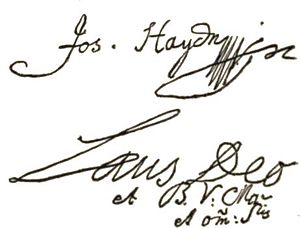 Jos. Haydn
Laus Deo
et B. V. Mae
et om: Stis